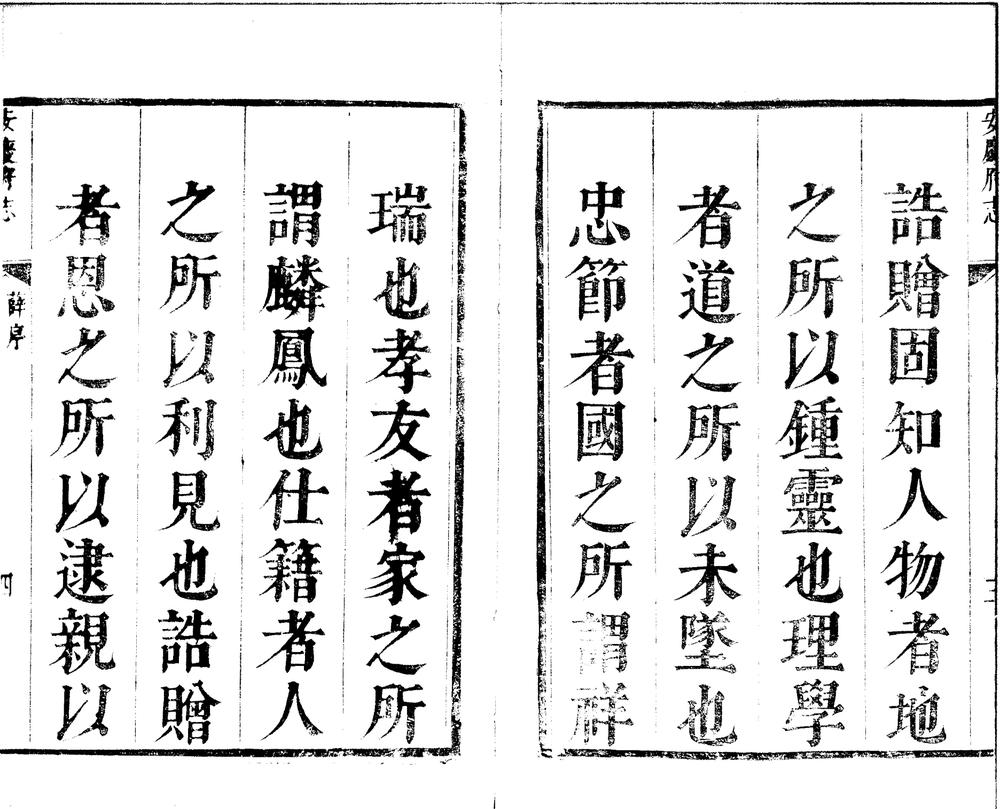 安慶府志
誥贈固知人物者地
之所以鍾靈也理學
者道之所以未墜也
忠節者國之所謂祥
瑞也孝友者家之所
謂麟鳳也仕籍者人
之所以利見也誥贈
者恩之所以逮親以
安慶府志
薛序
四